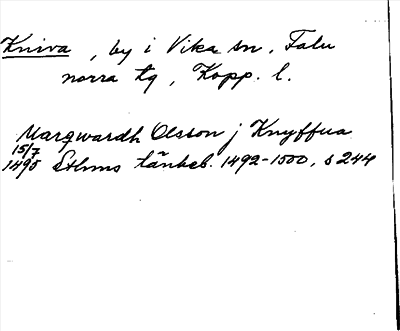 Kniva, by i Vika sn, Falu
norra tg, Kopp. l.
Marqwardh Olsson j Knyffua
15/7
1495 Sthms tänkeb. 1492-1500, s 244